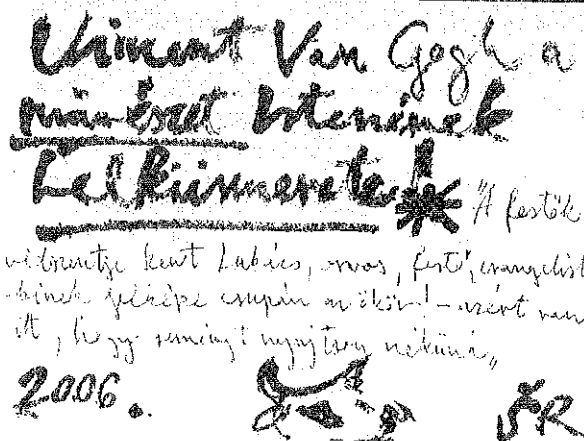 Vincent Van Gogh a
művészet Istenének
Lelkiismerete! "A festők
védszentje Szent Lukács, orvos, festő, evangelist
kinek jelképe csupán az ökör! – azért van
itt, hogy reményt nyújtson nékünk"
2006. ŠR